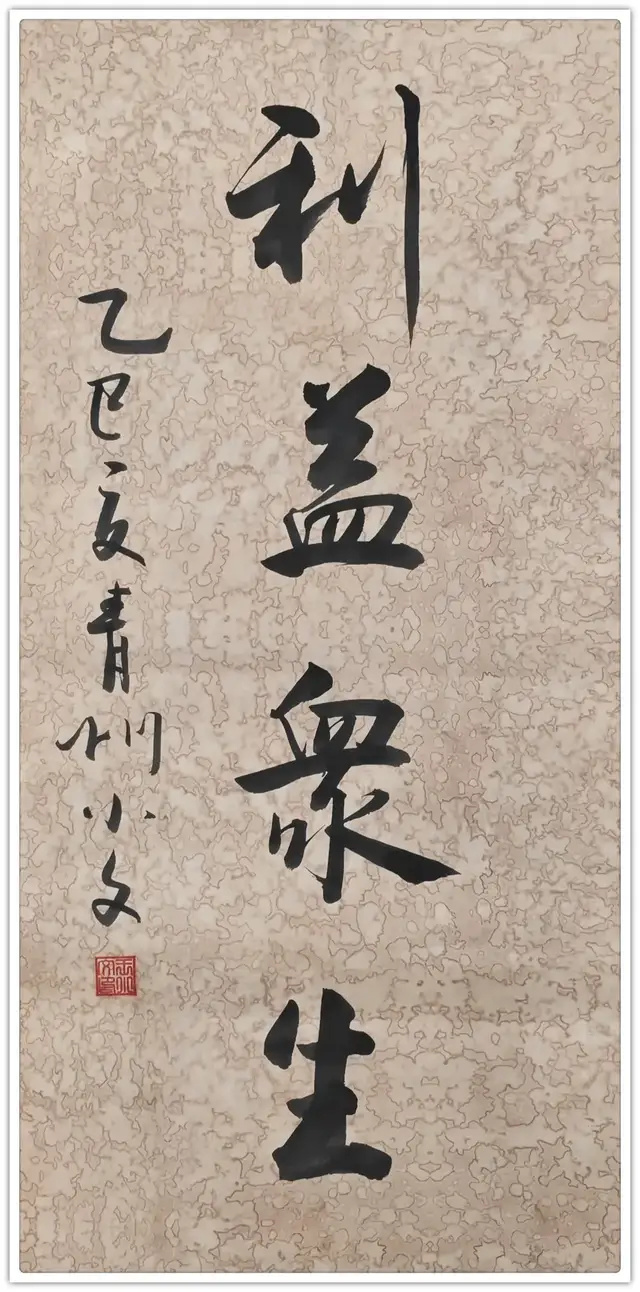 利益衆生
乙巳夏青州小文